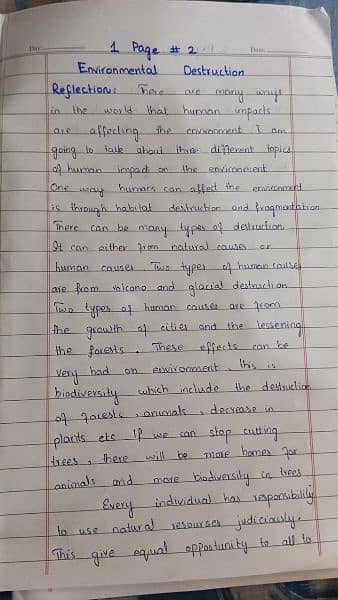 Date:
Date:
1 Page # 2
Environmental Destruction
Reflection: There are many ways
in the world that human impacts
are affecting the environment I am
going to talk about three different topics
of human impact on the environment
One way humans can affect the environment
is through habitat destruction and fragmentation
There can be many types of destruction
It can either from natural causes or
human causes. Two types of human causes
are from volcano and glacial destruction
Two types of human causes are from
the growth of cities and the lessening
the forests. These effects can be
very bad on environment, this is
biodiversity which include the destruction
of forests, animals, decrease in
plants etc If we can stop cutting
trees, there will be more homes for
animals and more biodiversity in trees
Every individual has responsibility
to use natural resourses judiciously.
This give equal oppostunity to all to